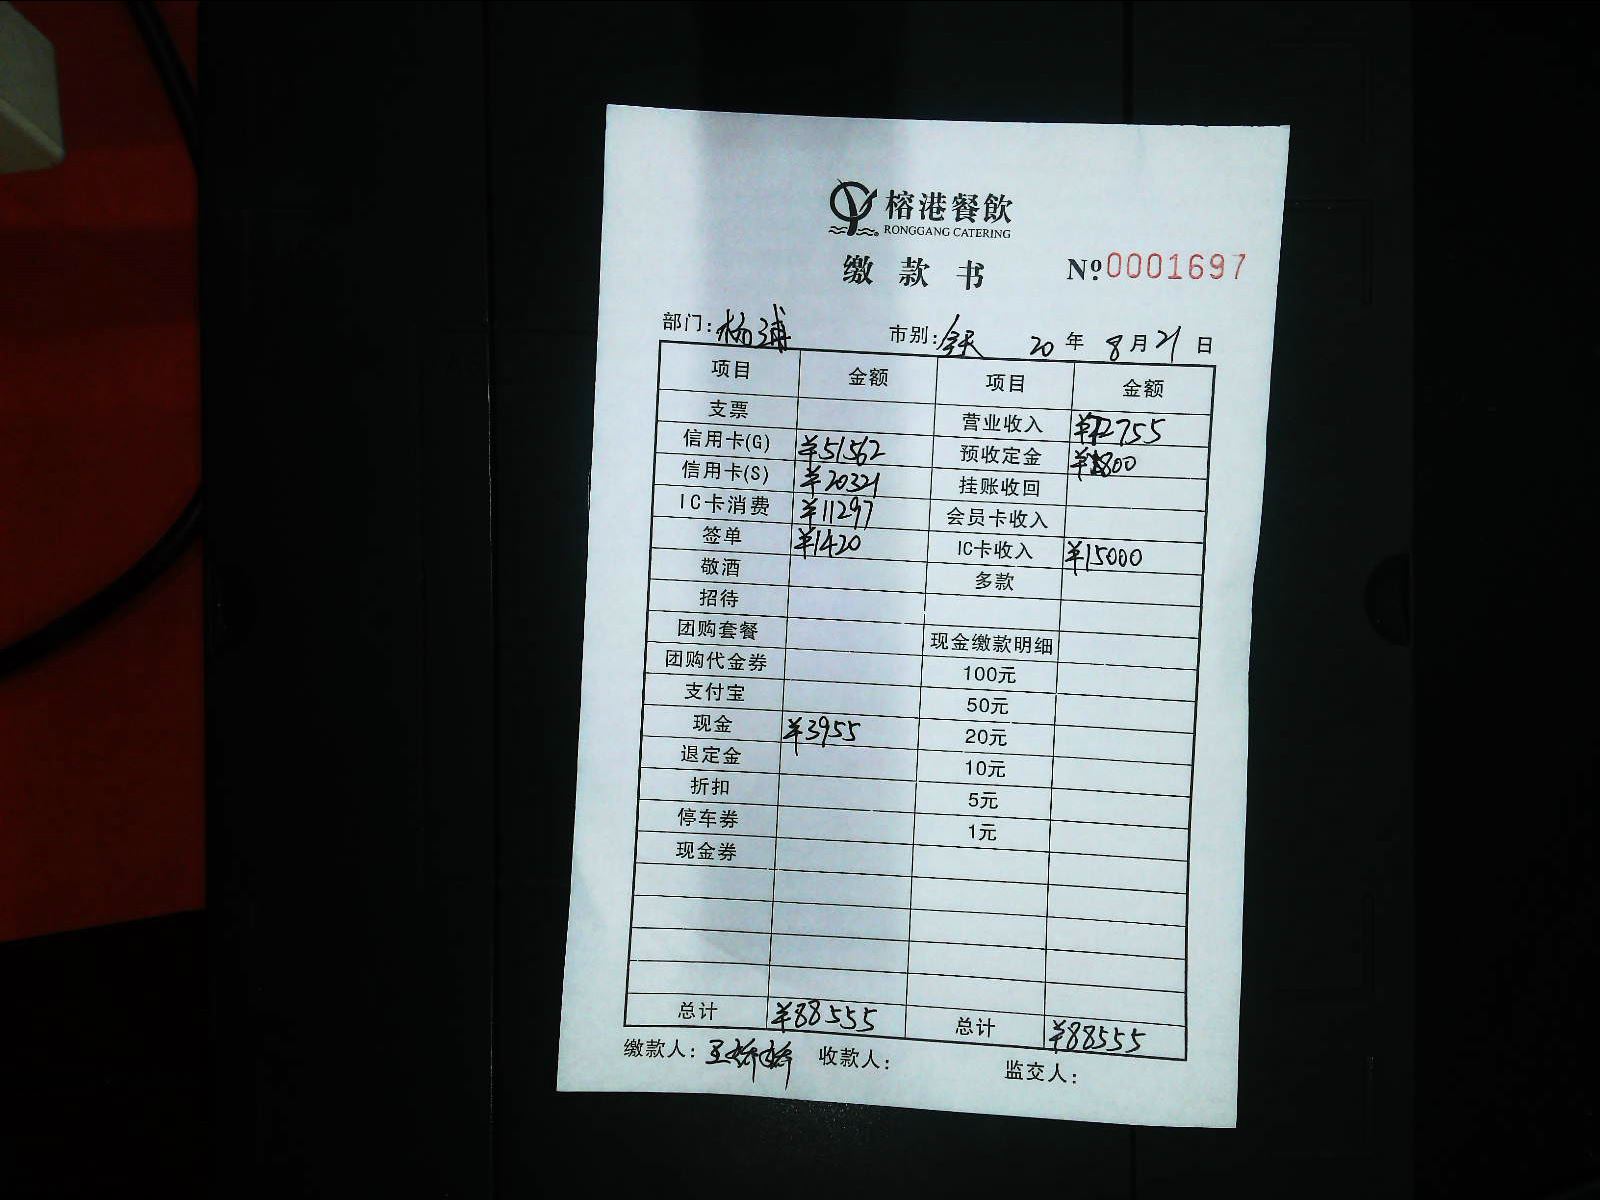 榕港餐飲
RONGGANG CATERING
缴款书 Nº 0001697
部门:杨浦 市别:全天 20年8月21日
项目 金额 项目 金额
支票 营业收入 ¥72755
信用卡(G) ¥51562 预收定金 ¥800
信用卡(S) ¥20321 挂账收回
IC卡消费 ¥11297 会员卡收入
签单 ¥1420 IC卡收入 ¥15000
敬酒 多款
招待
团购套餐 现金缴款明细
团购代金券 100元
支付宝 50元
现金 ¥3955 20元
退定金 10元
折扣 5元
停车券 1元
现金券
总计 ¥88555 总计 ¥88555
缴款人: 收款人: 监交人: